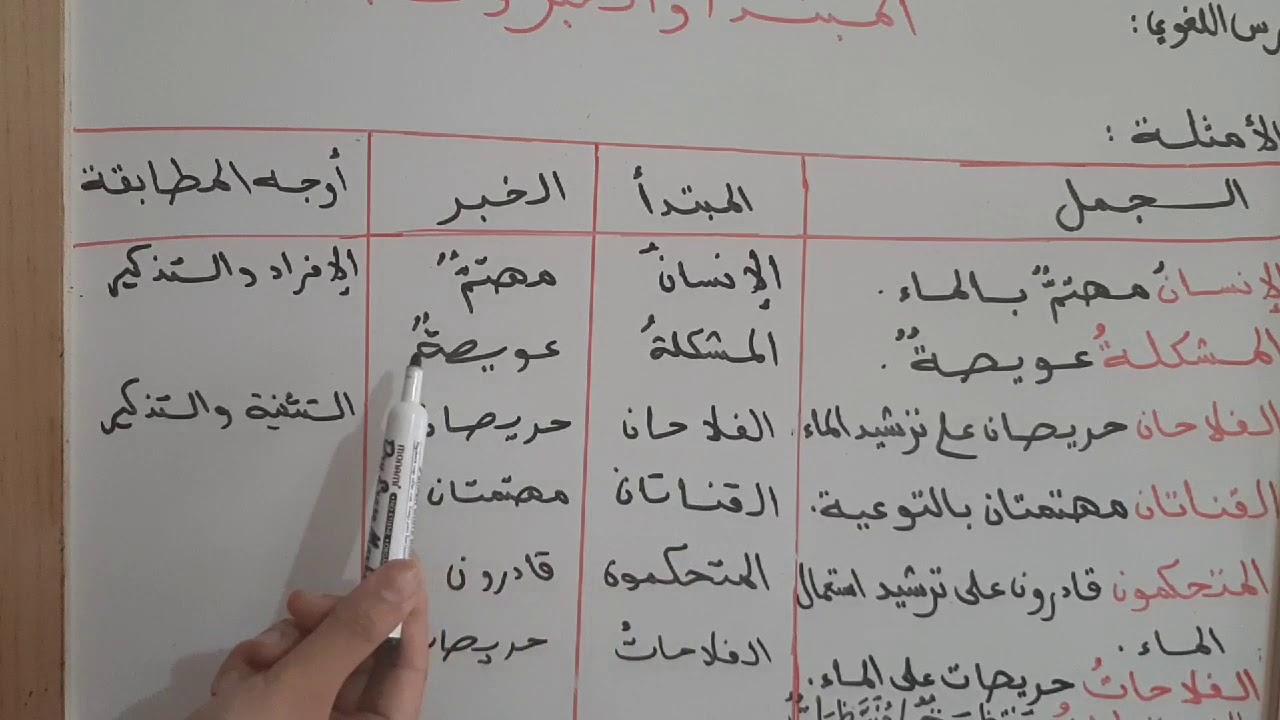 المبتدأ والخبر
رس اللغوي:
الأمثلة :
الجمل المبتدأ الخبر أوجه المطابقة
الإنسانُ مهتمٌّ بالماء. الإنسانُ مهتمٌّ الإفراد والتذكير
المشكلةُ عويصةٌ. المشكلةُ عويصةٌ
الفلاحان حريصان على ترشيد الماء. الفلاحان حريصان التثنية والتذكير
القناتان مهتمتان بالتوعية. القناتان مهتمتان
المتحكمون قادرون على ترشيد استعمال المتحكمون قادرون
الماء.
الفلاحاتُ حريصات على الماء. الفلاحاتُ حريصات
monami